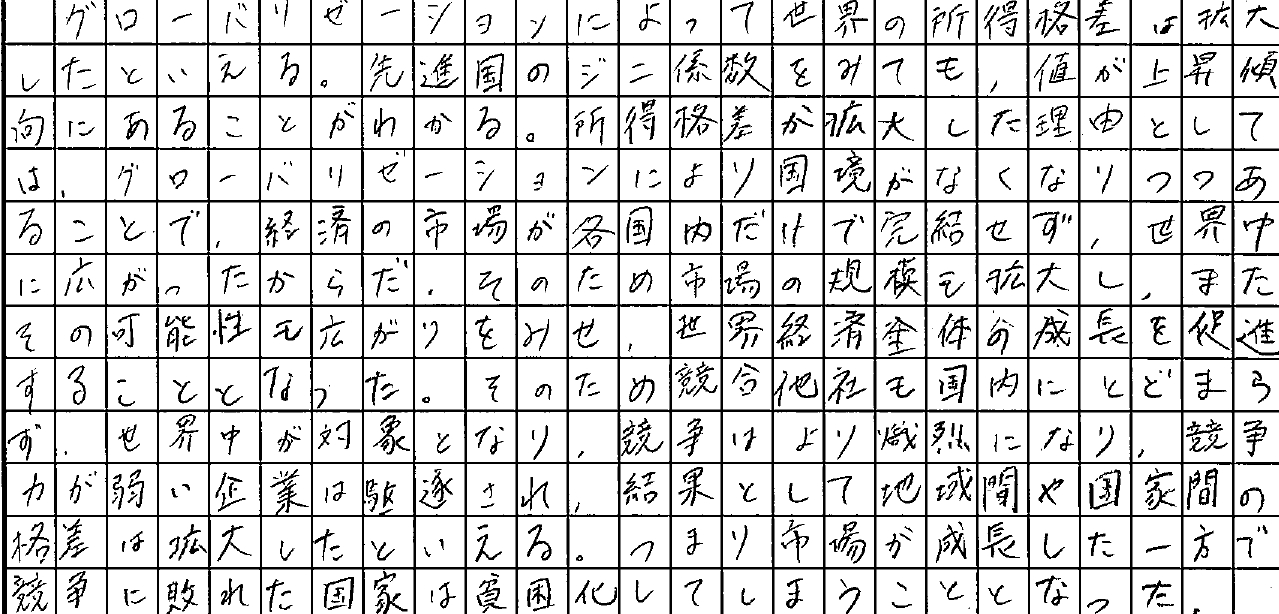 グローバリゼーションによって世界の所得格差は拡大
したといえる。先進国のジニ係数をみても,値が上昇傾
向にあることがわかる。所得格差が拡大した理由として
は,グローバリゼーションにより国境がなくなりつつあ
ることで,経済の市場が各国内だけで完結せず,世界中
に広がったからだ.そのため市場の規模も拡大し,また
その可能性も広がりをみせ,世界経済全体の成長を促進
することとなった。そのため競合他社も国内にとどまら
ず,世界中が対象となり,競争はより熾烈になり,競争
力が弱い企業は駆逐され,結果として地域間や国家間の
格差は拡大したといえる。つまり市場が成長した一方で
競争に敗れた国家は貧困化してしまうこととなった.